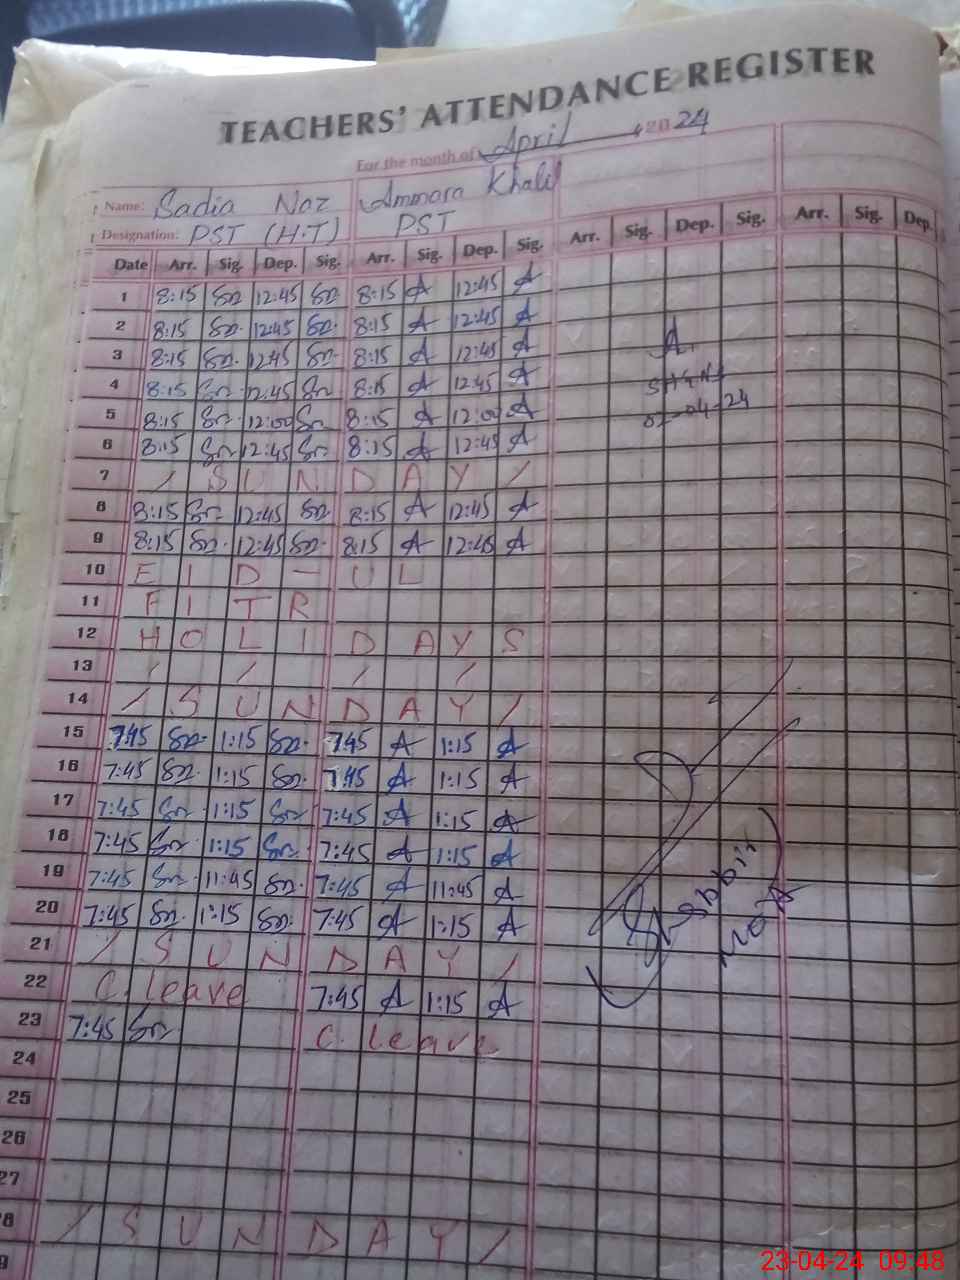 TEACHERS' ATTENDANCE REGISTER
For the month of April 2024
Name: Sadia Naz Ammara Khalil
Designation: PST (H.T) PST
Date Arr. Sig. Dep. Sig. Arr. Sig. Dep. Sig. Arr. Sig. Dep. Sig. Arr. Sig. Dep.
1 8:15 Sn 12:45 Sn 8:15 A 12:45 A
2 8:15 Sn 12:45 Sn 8:15 A 12:45 A
3 8:15 Sn 12:45 Sn 8:15 A 12:45 A
4 8:15 Sn 12:45 Sn 8:15 A 12:45 A
5 8:15 Sn 12:00 Sn 8:15 A 12:00 A
02-04-24
6 8:15 Sn 12:45 Sn 8:15 A 12:45 A
7 / S U N D A Y /
8 8:15 Sn 12:45 Sn 8:15 A 12:45 A
9 8:15 Sn 12:45 Sn 8:15 A 12:45 A
10 E I D - U L
11 F I T R
12 H O L I D A Y S
13 / / / /
14 / S U N D A Y /
15 7:45 Sn 1:15 Sn 7:45 A 1:15 A
16 7:45 Sn 1:15 Sn 7:45 A 1:15 A
17 7:45 Sn 1:15 Sn 7:45 A 1:15 A
18 7:45 Sn 1:15 Sn 7:45 A 1:15 A
19 7:45 Sn 11:45 Sn 7:45 A 11:45 A
20 7:45 Sn 1:15 Sn 7:45 A 1:15 A
21 / S U N D A Y /
22 C. leave 7:45 A 1:15 A
23 7:45 Sn C. leave
24
25
26
27
28 / S U N D A Y /
23-04-24 09:48